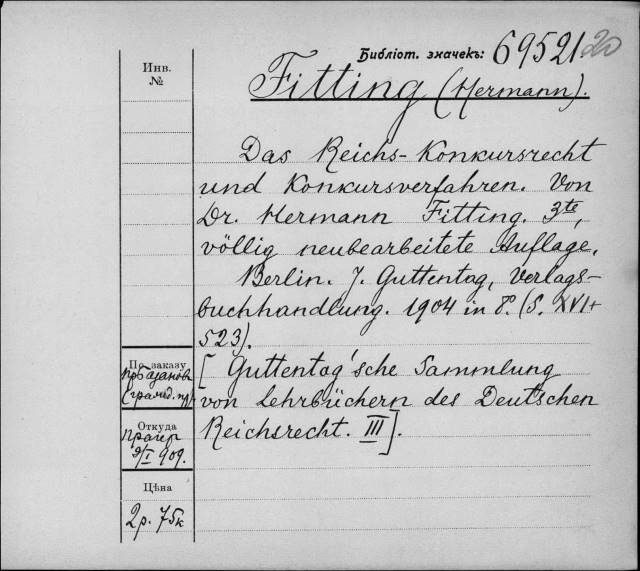 Библіот. значекъ: 69521 20
Инв.
№
Fitting (Hermann).
Das Reichs-Konkursrecht
und Konkursverfahren. Von
Dr. Hermann Fitting. 3te,
völlig neubearbeitete Auflage.
Berlin. J. Guttentag, Verlags-
buchhandlung. 1904 in 8º. (S. XVI+
523).
[Guttentag'sche Sammlung
von Lehrbüchern des Deutschen
Reichsrecht. III].
По заказу
пр. Базанов
(гражд. пр.)
Откуда
Прагер
9/I 909.
Цѣна
2 р. 75 к